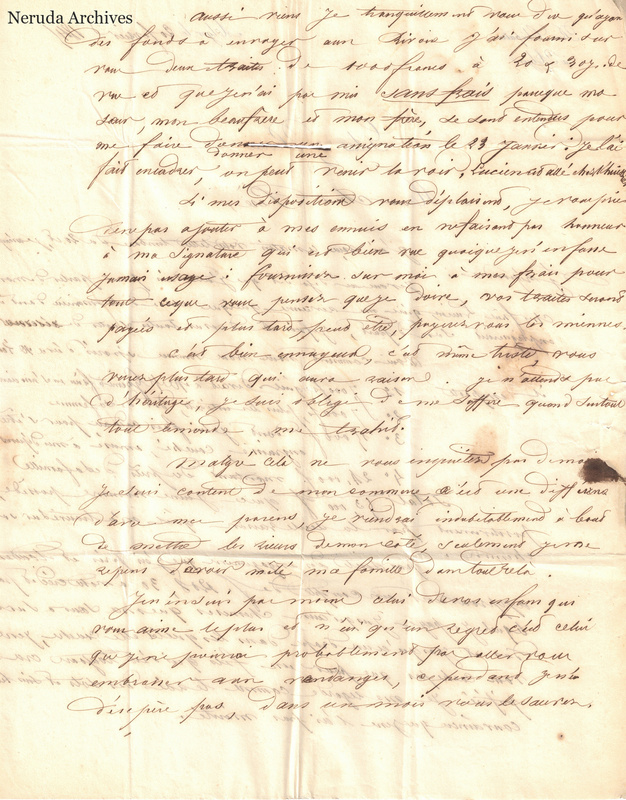 Neruda Archives
aussi viens je tranquillement vous dire qu'ayant
des fonds à envoyer aux Rivois j'ai fourni sur
vous deux traites de 1000 francs à 20 & 30 j. de
vue et que je n'ai pas mis sans frais parceque ma
sœur, mon beaufrère et mon frère, se sont entendus pour
me faire donner une assignation le 23 Janvier. Je l'ai
fait encadrer, on peut venir la voir, Lucien est allé chez
Si mes dispositions vous déplaisent, je vous prie
de ne pas ajouter à mes ennuis en ne faisant pas honneur
à ma signature qui est bien rue quoique je n'en fasse
jamais usage : fournissez sur moi à mes frais pour
tout ce que vous pensez que je doive, vos traites seront
payées et plus tard, peut être, payerez vous les miennes.
c'est bien ennuyeux, c'est même triste, vous
verrez plus tard qui aura raison. je n'attends pas
d'héritage, je suis obligé de me suffire quand surtout
tout le monde me trahit.
Malgré cela ne vous inquiétez pas de moi
je suis content de mon commerce, c'est une différence
d'avec mes parens, je viendrai indubitablement à bout
de mettre les rieurs de mon côté, seulement je me
repens d'avoir mêlé ma famille dans tout cela.
Je n'en suis pas moins celui de vos enfans qui
vous aime le plus et n'ai qu'un regret c'est celui
que je ne pourrai probablement pas aller vous
embrasser aux vendanges, cependant je n'en
désespère pas, dans un mois vous le saurez.